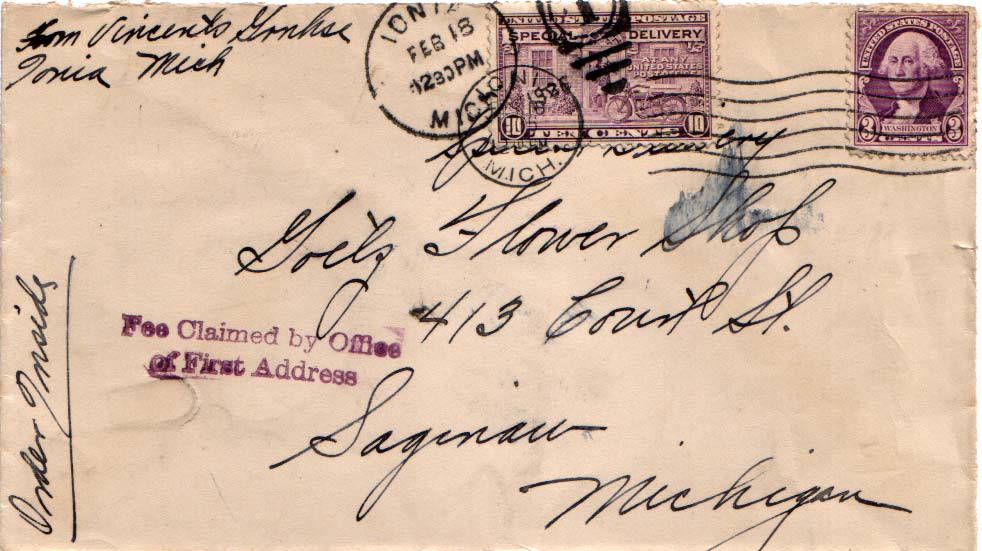 From Vincents
Ionia Mich
IONIA
FEB 18
1230PM
MICH.
UNITED STATES POSTAGE
SPECIAL DELIVERY
AT ANY
UNITED STATES
POST OFFICE
10 TEN CENTS 10
MICH.
UNITED STATES POSTAGE
WASHINGTON
3 CENTS 3
Special Delivery
Flower Shop
413 Court St.
Saginaw
Michigan
Fee Claimed by Office
of First Address
Order Inside